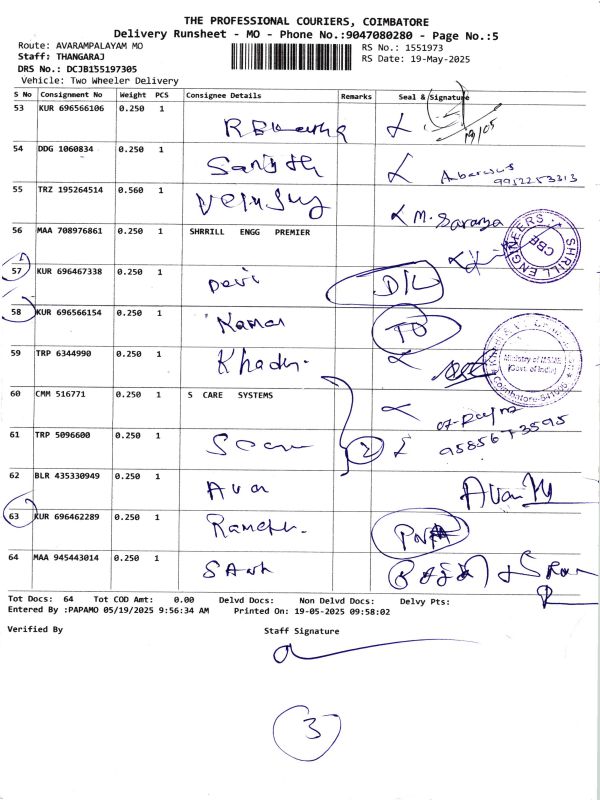 THE PROFESSIONAL COURIERS, COIMBATORE
Delivery Runsheet - MO - Phone No.:9047080280 - Page No.:5
Route: AVARAMPALAYAM MO
RS No.: 1551973
Staff: THANGARAJ
RS Date: 19-May-2025
DRS No.: DCJB155197305
Vehicle: Two Wheeler Delivery
S No Consignment No Weight PCS Consignee Details Remarks Seal & Signature
53 KUR 696566106 0.250 1
19/05
54 DDG 1060834 0.250 1
55 TRZ 195264514 0.560 1
M. Saranya
56 MAA 708976861 0.250 1 SHRRILL ENGG PREMIER
SHRILL ENGINEERS CBE
57 KUR 696467338 0.250 1 Devi D/L
58 KUR 696566154 0.250 1 Kamal
59 TRP 6344990 0.250 1 Khader
Ministry of MSME
(Govt. of India)
Coimbatore-641006
60 CMM 516771 0.250 1 S CARE SYSTEMS
61 TRP 5096600 0.250 1 2
9585673595
62 BLR 435330949 0.250 1
63 KUR 696462289 0.250 1
64 MAA 945443014 0.250 1
Tot Docs: 64 Tot COD Amt: 0.00 Delvd Docs: Non Delvd Docs: Delvy Pts:
Entered By :PAPAMO 05/19/2025 9:56:34 AM Printed On: 19-05-2025 09:58:02
Verified By Staff Signature
3